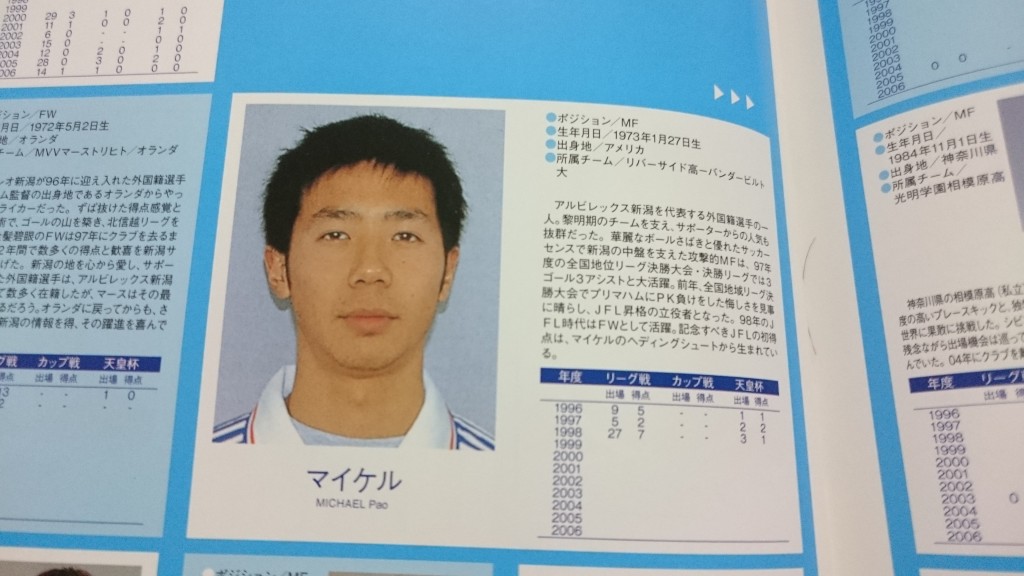 1999
2000 29 3 1 0 1 0
2001 11 1 0 0 2 0
2002 6 0 - - 1 1
2003 15 0 - - 1 0
2004 12 0 2 0 1 0
2005 28 0 3 0 2 0
2006 14 1 1 0 0 0
ジション／FW
月日／1972年5月2日生
地／オランダ
チーム／MVVマーストリヒト／オランダ
レオ新潟が96年に迎え入れた外国籍選手
ム監督の出身地であるオランダからやっ
ライカーだった。ずば抜けた得点感覚と
術で、ゴールの山を築き、北信越リーグを
髪碧眼のFWは97年にクラブを去るま
2年間で数多くの得点と歓喜を新潟サ
げた。新潟の地を心から愛し、サポー
た外国籍選手は、アルビレックス新潟
で数多く在籍したが、マースはその最
るだろう。オランダに戻ってからも、さ
新潟の情報を得、その躍進を喜んで
グ戦 カップ戦 天皇杯
得点 出場 得点 出場 得点
13 - - 1 0
2 - - - -
マイケル
MICHAEL Pao
●ポジション／MF
●生年月日／1973年1月27日生
●出身地／アメリカ
●所属チーム／リバーサイド高ーバンダービルト
大
アルビレックス新潟を代表する外国籍選手の一
人。黎明期のチームを支え、サポーターからの人気も
抜群だった。華麗なボールさばきと優れたサッカー
センスで新潟の中盤を支えた攻撃的MFは、97年
度の全国地位リーグ決勝大会・決勝リーグでは3
ゴール3アシストと大活躍。前年、全国地域リーグ決
勝大会でプリマハムにPK負けをした悔しさを見事
に晴らし、JFL昇格の立役者となった。98年のJ
FL時代はFWとして活躍。記念すべきJFLの初得
点は、マイケルのヘディングシュートから生まれてい
る。
年度 リーグ戦 カップ戦 天皇杯
出場 得点 出場 得点 出場 得点
1996 9 5 - - 1 1
1997 5 2 - - 2 2
1998 27 7 - - 3 1
1999
2000
2001
2002
2003
2004
2005
2006
●ポジション／MF
1997
1998
1999
2000
2001
2002
2003
2004 0 0
2005
2006
●ポジション／MF
●生年月日／
1984年11月1日生
●出身地／神奈川県
●所属チーム／
光明学園相模原高
神奈川県の相模原高（私立
度の高いプレースキックと、独
世界に果敢に挑戦した。シビ
残念ながら出場機会は巡って
んでいた。04年にクラブを離
年度 リーグ
出場
1996
1997
1998
1999
2000
2001
2002
2003 0
2004
2005
2006